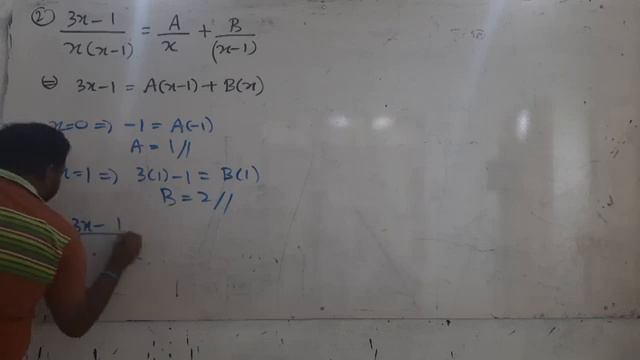 ② (3x-1)/(x(x-1)) = A/x + B/(x-1)
⇔ 3x-1 = A(x-1) + B(x)
x=0 ⇒ -1 = A(-1)
A = 1//
x=1 ⇒ 3(1)-1 = B(1)
B = 2//
3x-1